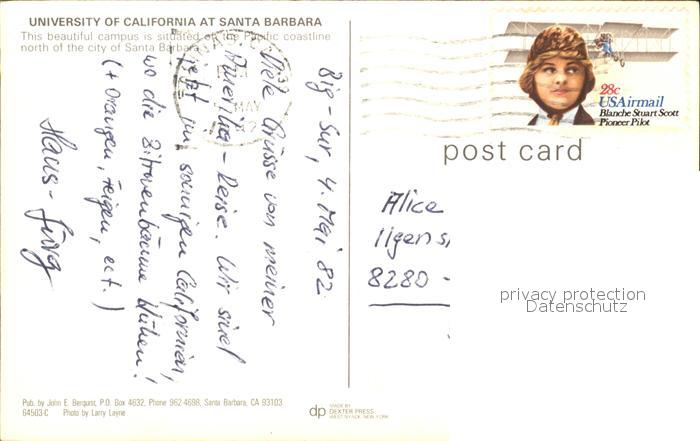 UNIVERSITY OF CALIFORNIA AT SANTA BARBARA
This beautiful campus is situated on the Pacific coastline
north of the city of Santa Barbara.
Big-Sur, 4. Mai 82
Viele Grüsse von meiner
Amerika-Reise. Wir sind
jetzt im sonnigen Californien,
wo die Zitronenbäume blühen!
(+ Orangen, Feigen, ect.)
Hans-Jürg
Pub. by John E. Bergunt, P.O. Box 4632, Phone 962-4698, Santa Barbara, CA 93103
64503-C Photo by Larry Layne
28c
USAirmail
Blanche Stuart Scott
Pioneer Pilot
MAY
post card
Alice
8280 -
privacy protection
Datenschutz
dp MADE BY
DEXTER PRESS
WEST NYACK, NEW YORK